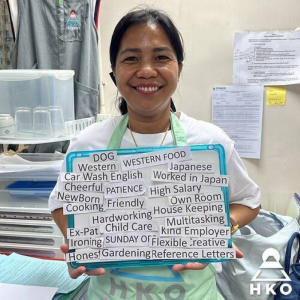 HKO
DOG WESTERN FOOD
Western Japanese
Car Wash English Worked in Japan
Cheerful PATIENCE High Salary
NewBorn Own Room
Cooking Friendly House Keeping
Hardworking Multitasking
Ex-Pat Child Care Kind Employer
Ironing SUNDAY OFF Flexible Creative
Honest Gardening Reference Letters
HKO
HKO